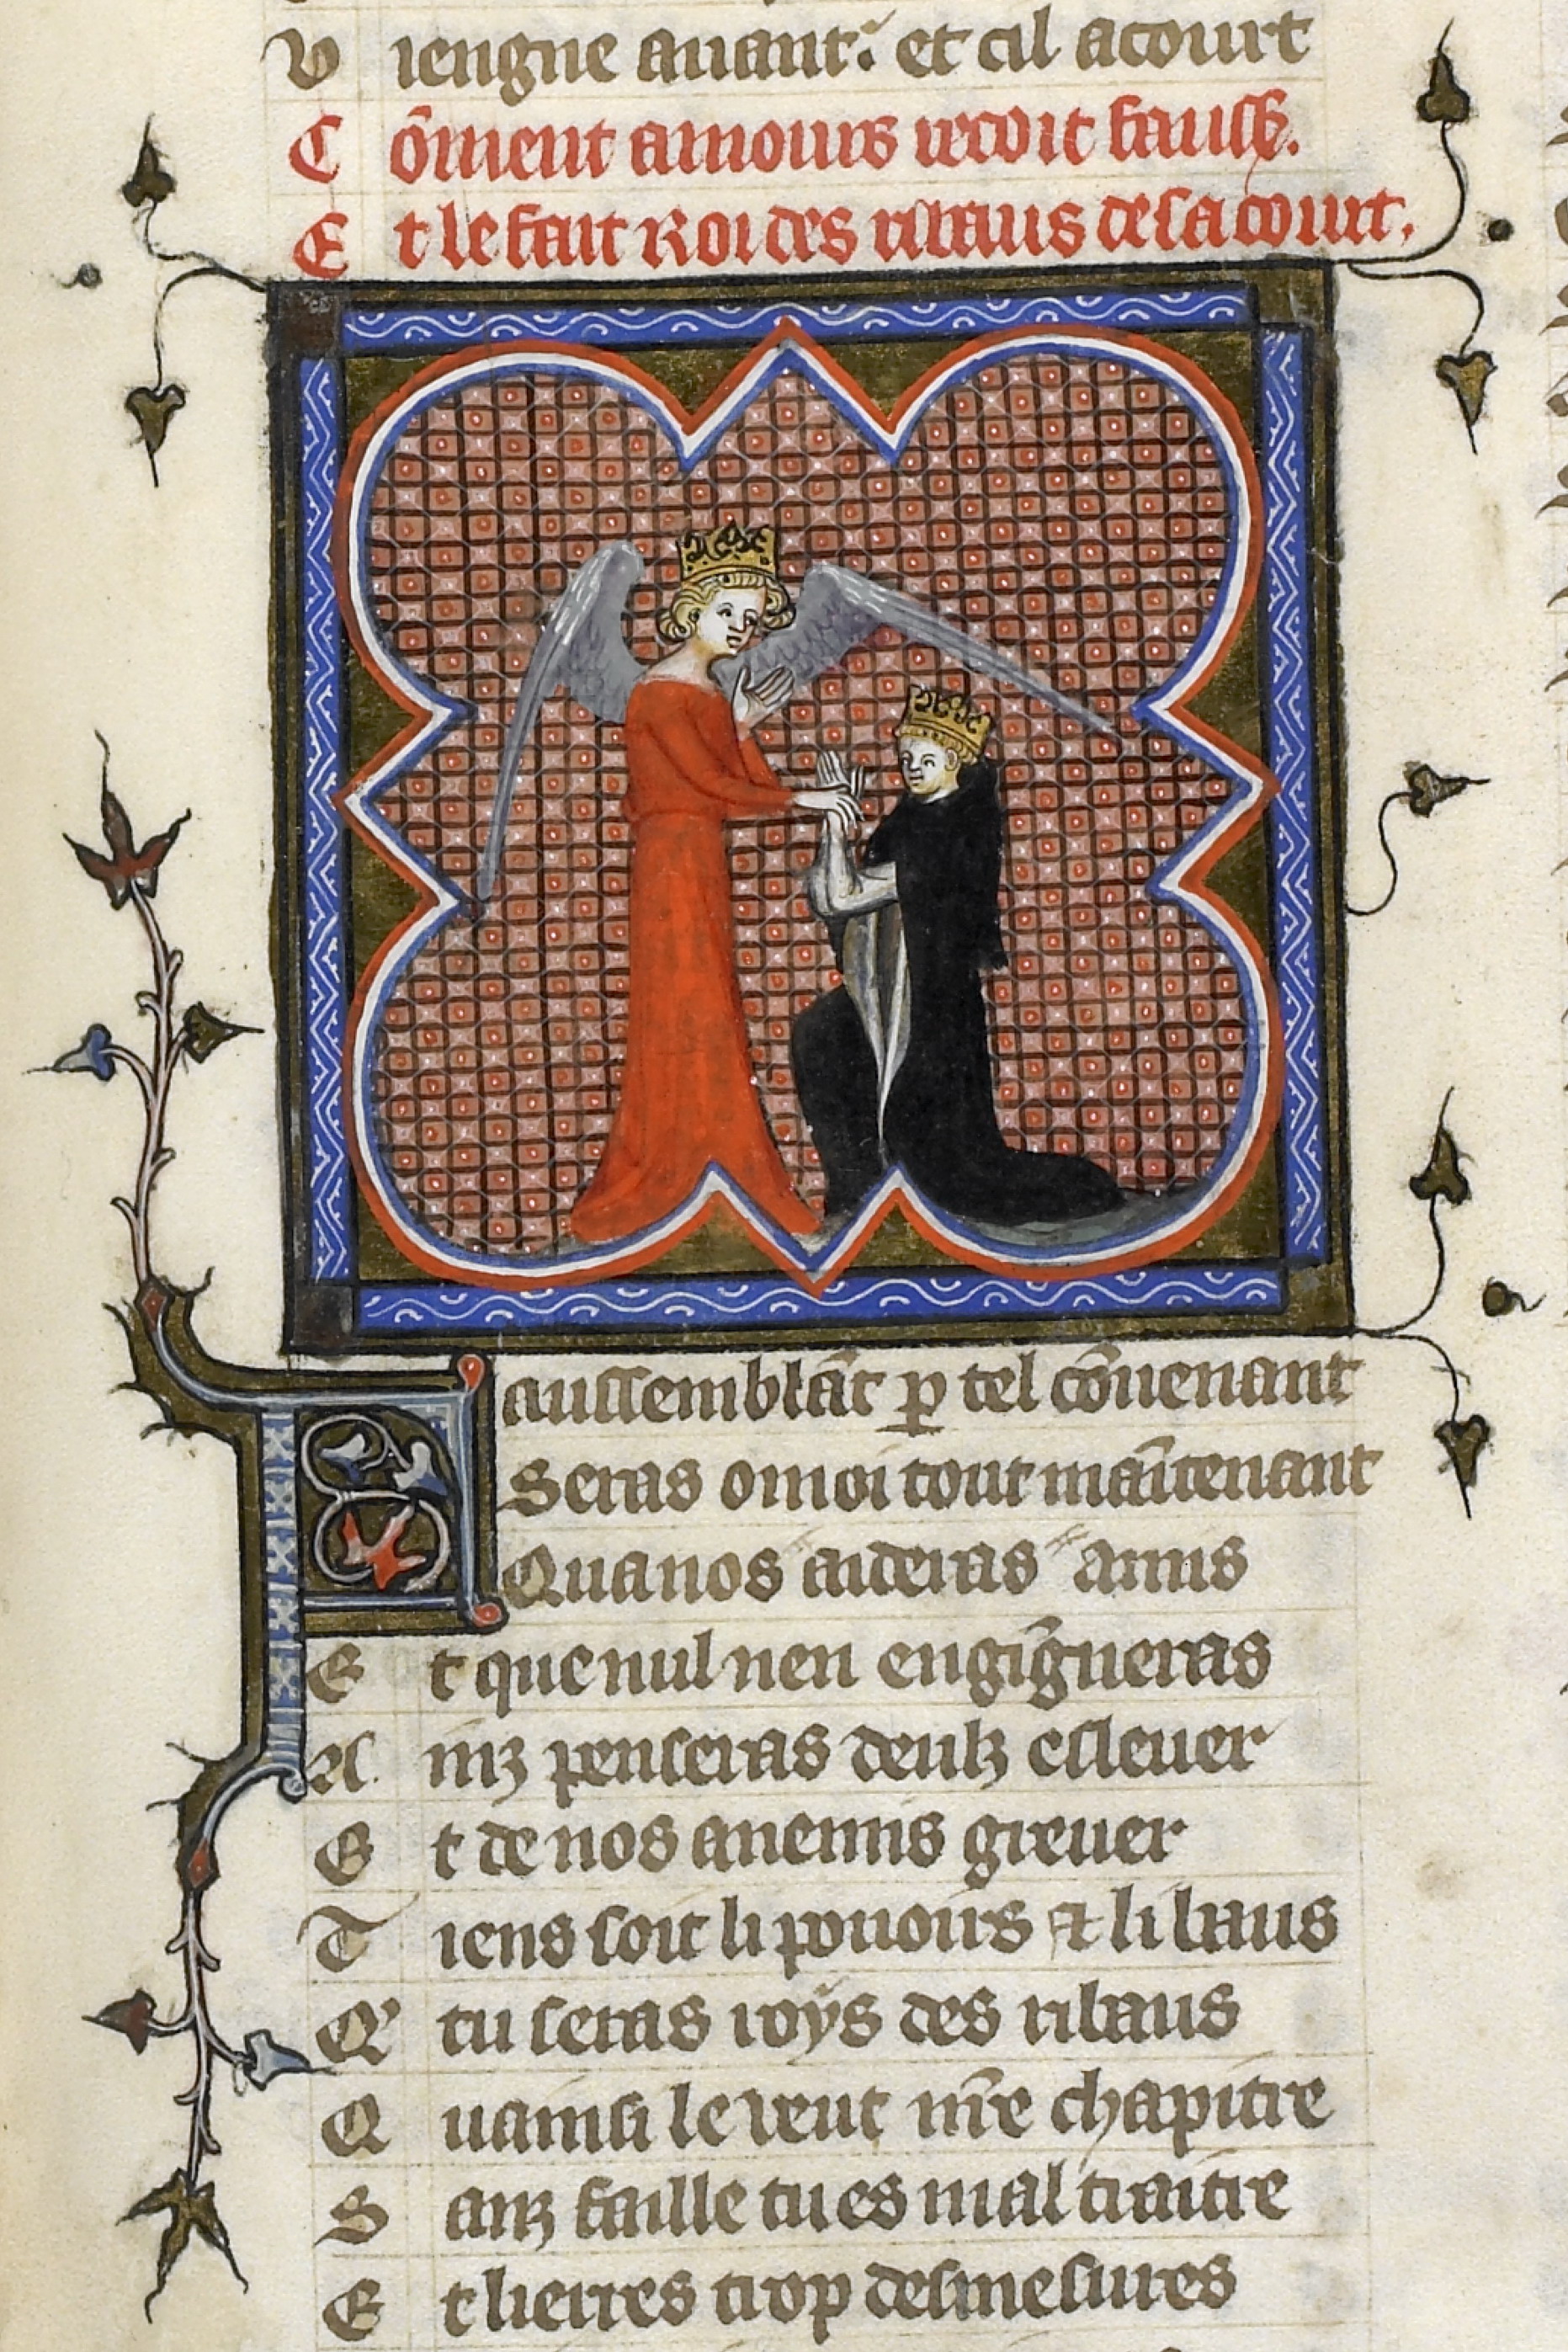 V iengne auant. et cil acourt
C õment amours recoit fauls.
E t le fait Roi des ribaus de sa court.
Faussemblãt ꝑ tel cõuenant
Seras o moi tout maĩtenant
Qua nos aideras amis
E t que nul nen engig̃neras
A inz penseras deulz esleuer
E t de nos anemis greuer
T iens soit li pouoirs ⁊ li baus
Q' tu seras roys des ribaus
Q uainsi le veut nr̃e chapitre
S anz faille tu es mal traitre
E t lierres trop desmesures